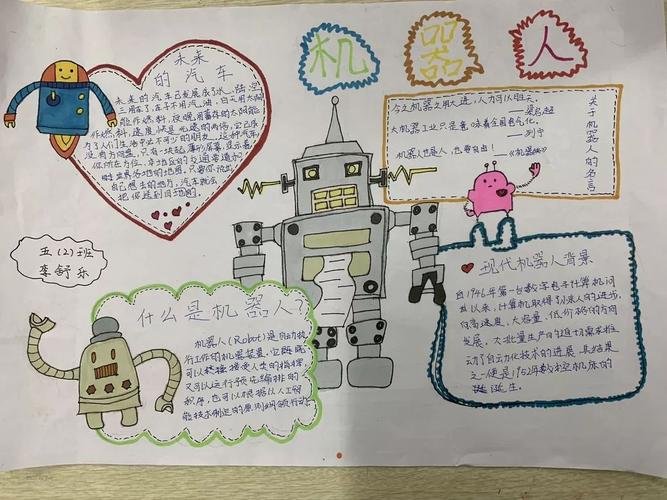 机器人
未来
的汽车
未来的汽车已发展成了水、陆、空
三用车了,车子不用汽油,白天用太阳
能作燃料,夜晚用蓄存的太阳能
作燃料,速度快是光速的两倍,它已成
为了人们生活中必不可少的朋友。这种汽车
没有方向盘,只有一块超薄形屏幕,显示着
你所在方位、本地区的交通要道和
世界各地的地图,只要你说出
自己想去的地方,汽车就会
把你送到目的地。
关于机器人的名言
今之机器之用大进,人力可以胜天。
——梁启超
大机器工业只是意味着全国电气化。
——列宁
机器人也是人,也要自由!
五(2)班
李舒乐
什么是机器人?
机器人(Robot)是自动执
行工作的机器装置。它既
可以接受人类的指挥,
又可以运行预先编排的
程序,也可以根据以人工智
能技术制定的原则纲领行动。
现代机器人背景
自1946年第一台数字电子计算机问
世以来,计算机取得了惊人的进步,
向高速度、大容量、低价格的方向
发展。大批量生产的迫切需求推
动了自动化技术的进展,其结果
之一便是1952年数控机床的
诞生。